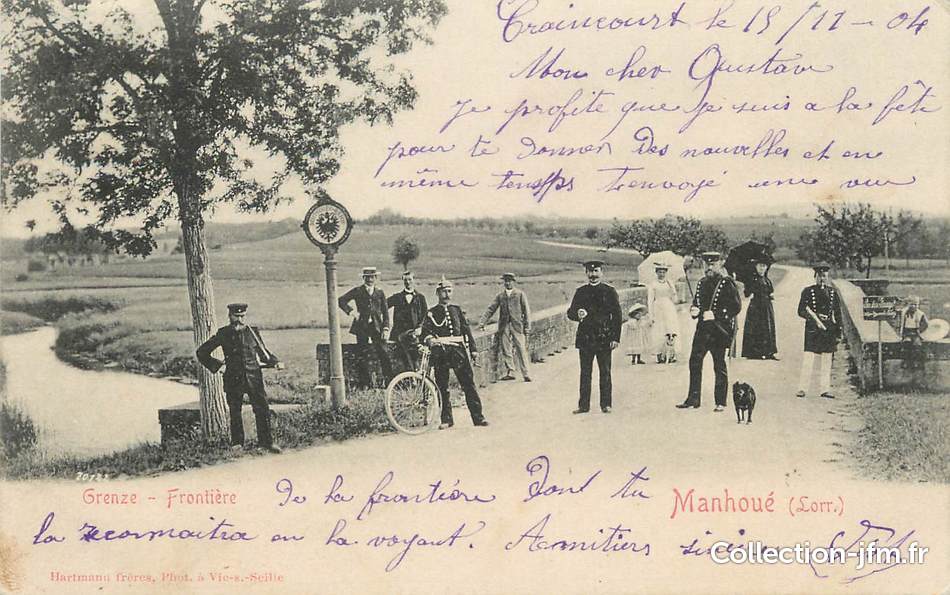 Craincourt le 15/11-04
Mon cher Gustave
Je profite que je suis a la fête
pour te donner des nouvelles et en
même temps t'envoyé une vue
20785
Grenze - Frontière
De la frontière Dont tu
Manhoué (Lorr.)
la reconnaitra en la voyant. Amitiers
Collection-jfm.fr
Hartmann frères, Phot. à Vic-s.-Seille